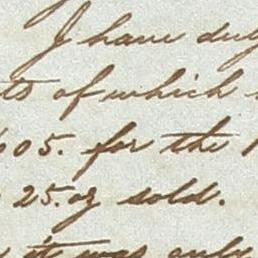 I have duly
of which
605. for the
25.oz sold.
it was only